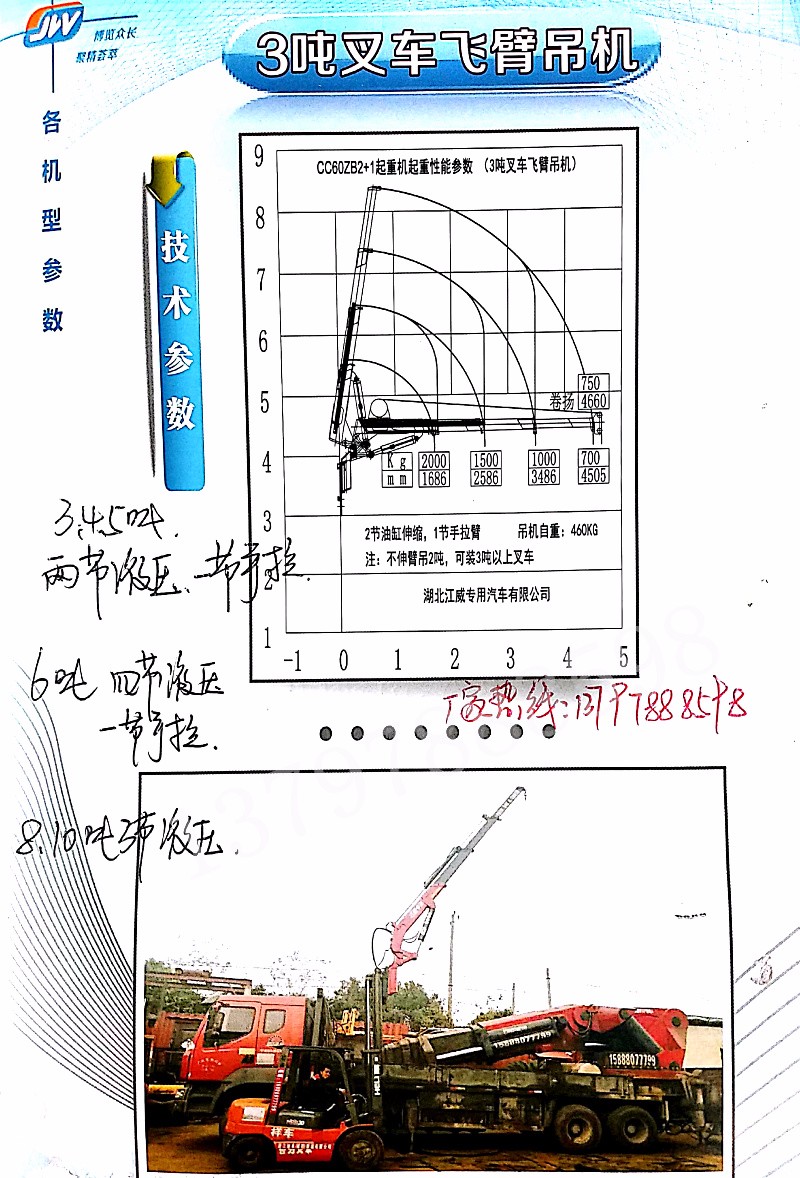 JW
博览众长
聚精荟萃
3吨叉车飞臂吊机
各机型参数
技术参数
CC60ZB2+1起重机起重性能参数 （3吨叉车飞臂吊机）
9
8
7
6
5
4
3
2
1
750
卷扬 4660
Kg 2000 1500 1000 700
mm 1686 2586 3486 4505
2节油缸伸缩，1节手拉臂 吊机自重：460KG
注：不伸臂吊2吨，可装3吨以上叉车
湖北江威专用汽车有限公司
-1 0 1 2 3 4 5
3.4.5吨.
两节液压、一节手拉.
6吨 四节液压
一节手拉.
厂家热线:13797888598
8.10吨3节液压.
15888077799
15888077799
样车